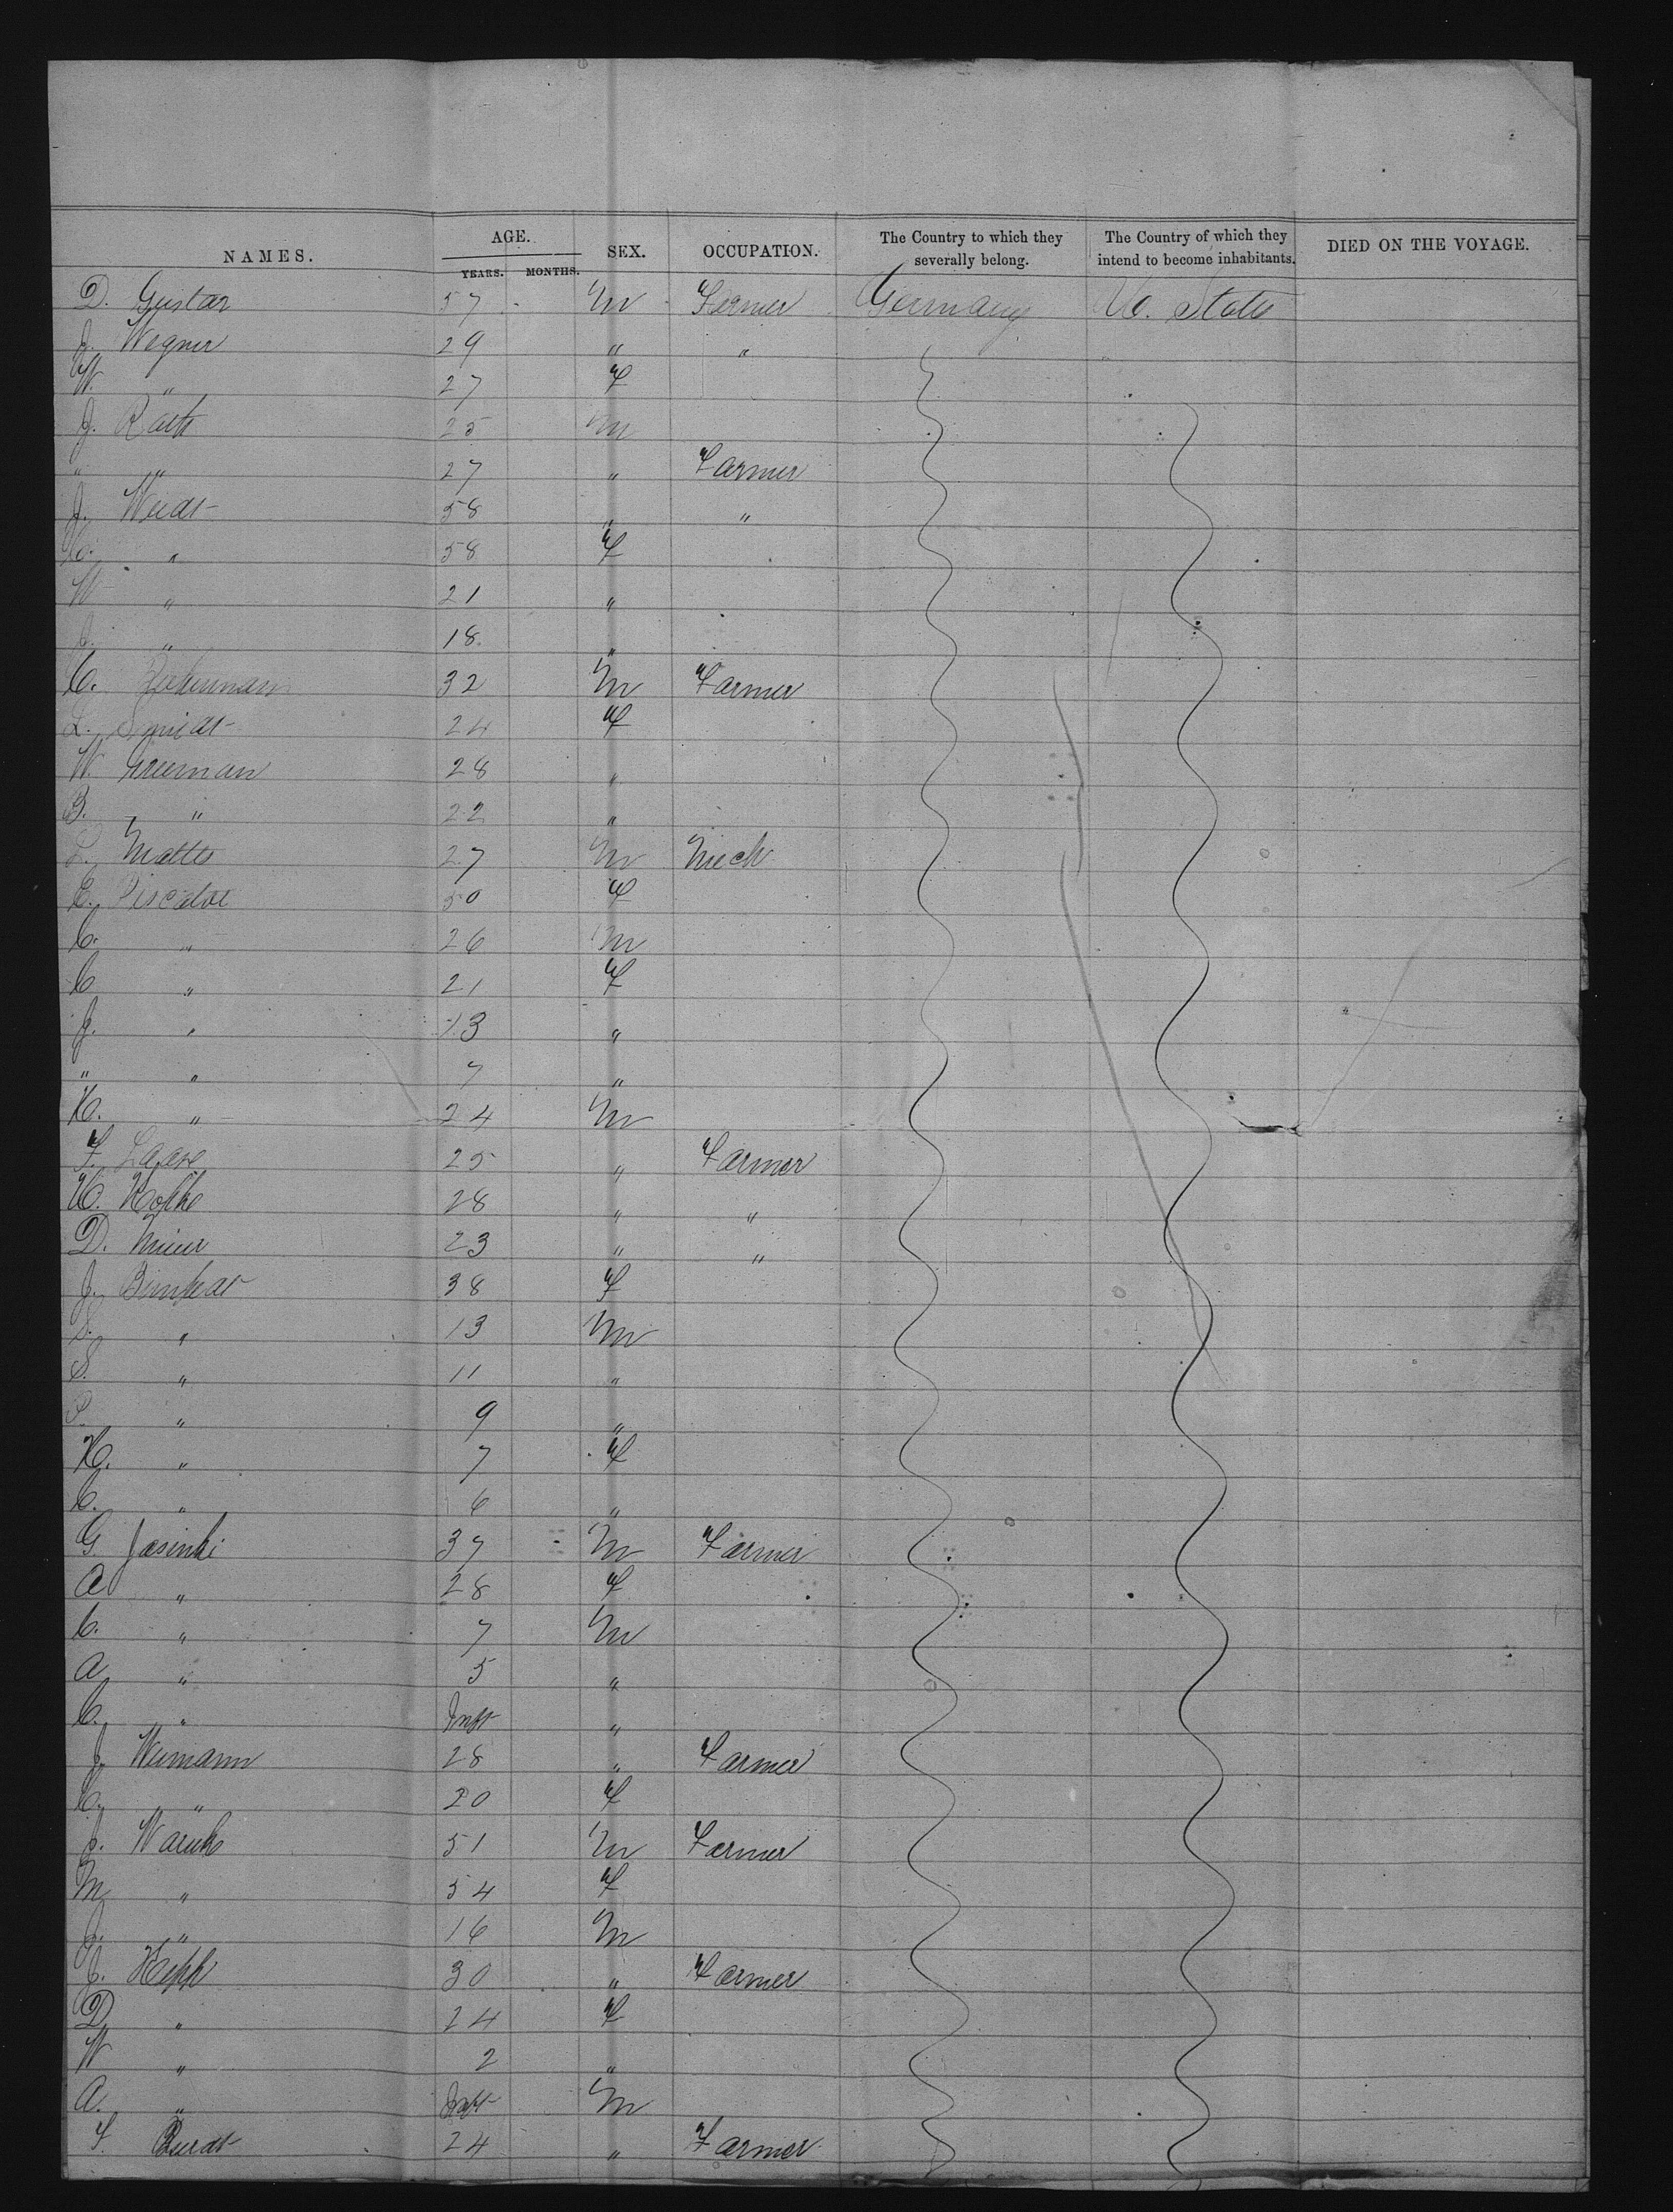 NAMES. AGE. YEARS. MONTHS. SEX. OCCUPATION. The Country to which they severally belong. The Country of which they intend to become inhabitants. DIED ON THE VOYAGE.
D. Gustav 57 M Farmer Germany U. States
J. Wegner 29 " "
W. " 27 F
J. Raets 25 M
" " 27 " Farmer
J. Weidt 58 " "
C. " 58 F
W " 21 "
" 18. "
C. 32 M Farmer
L. Smidt 24 F
W. 28 "
B. " 22 "
L. Matte 27 M Mech
E. 50 F
C. " 26 M
C " 21 F
J. " 13 "
" " 7 "
H. " 24 M
F. Laase 25 " Farmer
H. Koppke 28 " "
D. Meier 23 " "
J. 38 F
S. " 13 M
S. " 11 "
" 9 "
H. " 7 F
C. " 6 "
G. Jasinki 37 M Farmer
A " 28 F
C. " 7 M
A " 5 "
C. " Inft "
J. Weimann 28 " Farmer
C. " 20 F
J. 51 M Farmer
M " 54 F
J. " 16 M
J. Hepp 30 " Farmer
D " 24 F
W " 2 "
A. " Inft M
F. 24 " Farmer